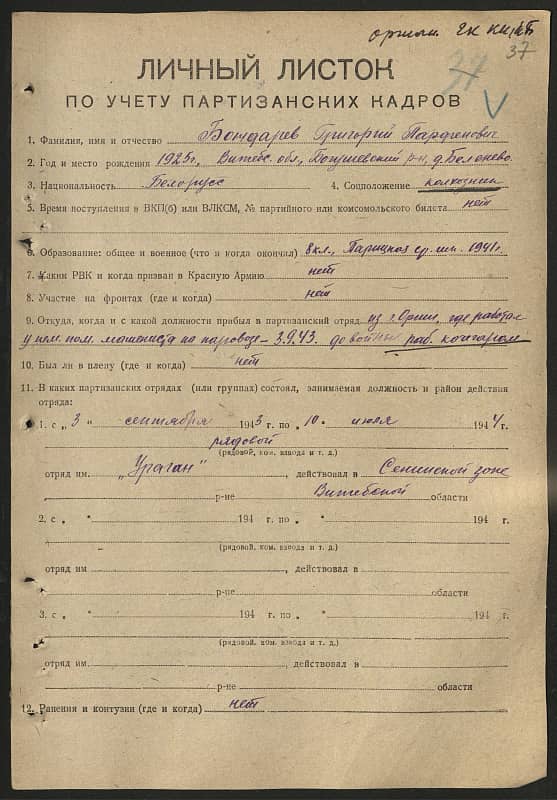 37
37
ЛИЧНЫЙ ЛИСТОК
ПО УЧЕТУ ПАРТИЗАНСКИХ КАДРОВ
1. Фамилия, имя и отчество Бондарев Григорий Парфенович
2. Год и место рождения 1925г, Витебс. обл., Богушевский р-н, д.
3. Национальность Белорусс 4. Соцположение колхозник
5. Время поступления в ВКП(б) или ВЛКСМ, № партийного или комсомольского билета нет
6. Образование: общее и военное (что и когда окончил) 8 кл., ср. шк. 1941г.
7. Каким РВК и когда призван в Красную Армию нет
8. Участие на фронтах (где и когда) нет
9. Откуда, когда и с какой должности прибыл в партизанский отряд из г. Орши, где работал
у нем. пом. машениста на паровозе - 3.9.43. до войны раб. кочегаром
10. Был ли в плену (где и когда) нет
11. В каких партизанских отрядах (или группах) состоял, занимаемая должность и район действия
отряда:
1. с „ 3 " сентября 1943 г. по „ 10 " июля 1944 г.
рядовой
(рядовой, ком. взвода и т. д.)
отряд им. „Ураган" , действовал в Сенинской зоне
р-не Витебской области
2. с „ " 194 г. по „ " 194 г.
(рядовой, ком. взвода и т. д.)
отряд им , действовал в
р-не области
3. с „ " 194 г. по „ " 194 г.
(рядовой, ком. взвода и т. д.)
отряд им , действовал в
р-не области
12. Ранения и контузии (где и когда) нет